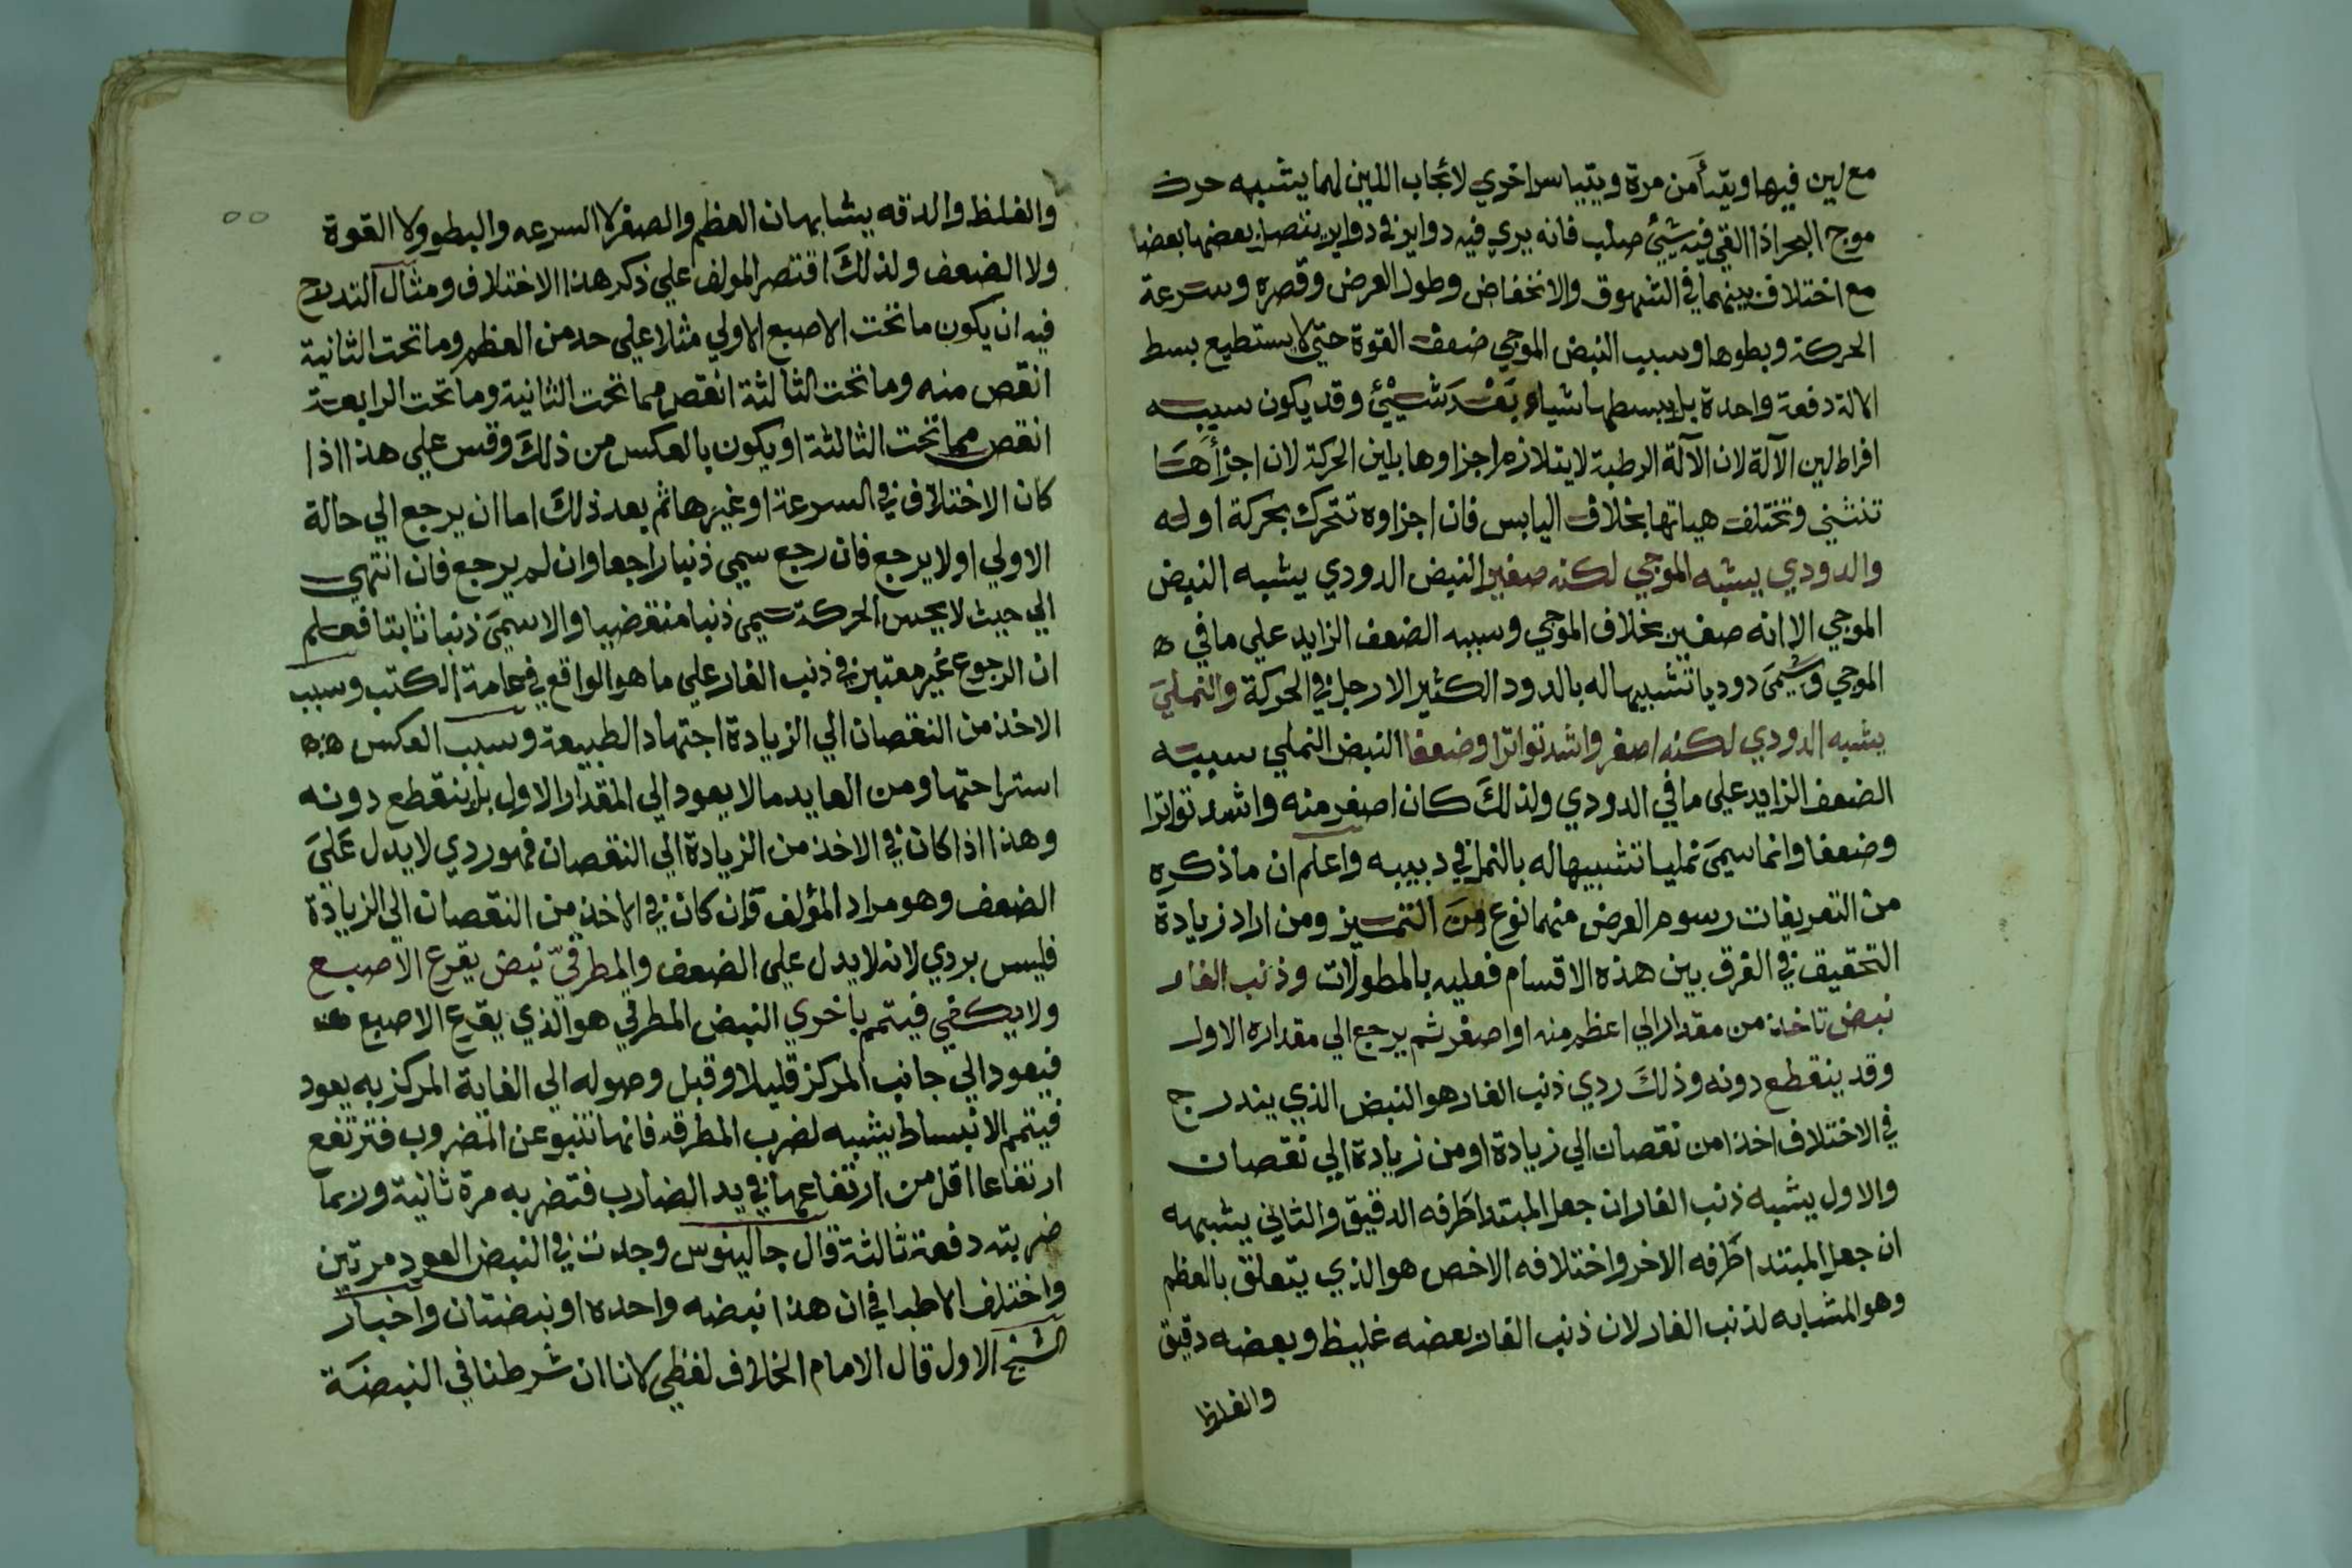 مع لين فيها ويتيامن مرة ويتياسر اخري لايجاب اللين لهما يشبه حركة
موج البحر اذا القي فيه شيئ صلب فانه يري فيه دواير في دواير يتصل بعضها بعضا
مع اختلاف بينهما في الشهوق والانخفاض وطول العرض وقصره وسرعة
الحركة وبطوها وسبب النبض الموجي ضعف القوة حتي لا يستطيع بسط
الالة دفعة واحدة بل يبسطها شياء بَعْدَ شيئ وقد يكون سببه
افراط لين الآلة لان الآلة الرطبة لا يتلازم اجزاوها بلين الحركة لان اجزأها
تنثني وتختلف هياتها بخلاف اليابس فان اجزاوه تتحرك بحركة اوله
والدودي يشبه الموجي لكنه صغير النبض الدودي يشبه النبض
الموجي الا انه صغير بخلاف الموجي وسببه الضعف الزايد علي ما في
الموجي وسُمىَ دوديا تشبيها له بالدود الكثير الارجل في الحركة والنملىَ
يشبه الدودي لكنه اصغر واشد تواترا وضعفا النبض النملي سببه
الضعف الزايد علي ما في الدودي ولذلكَ كان اصغر منه واشد تواترا
وضعفا وانما سمىَ نمليا تشبيها له بالنمل في دبيبه واعلم ان ما ذكره
من التعريفات رسوم الغرض منها نوع مِنَ التمييز ومن اراد زيادة
التحقيق في الفرق بين هذه الاقسام فعليه بالمطولات وذنب الفار
نبض تاخذ من مقدار الي اعظم منه او اصغر ثم يرجع الي مقداره الاول
وقد ينقطع دونه وذلكَ ردي ذنب الفار هو النبض الذي يندرج
في الاختلاف اخذا من نقصان الي زيادة او من زيادة الي نقصان
والاول يشبه ذنب الفار ان جعل المبتدا طَرفه الدقيق والثاني يشبهه
ان جعل المبتدا طَرفه الاخر واختلافه الاخص هو الذي يتعلق بالعظم
وهو المشابه لذنب الفار لان ذنب الفار بعضه غليظ وبعضه دقيق
والغلظ
والغلظ والدقه يشابهان العظم والصغر لا السرعه والبطو ولا القوة
ولا الضعف ولذلكَ اقتصر المولف علي ذكر هذا الاختلاف ومثال التدرج
فيه ان يكون ما تحت الاصبع الاولي مثلا علي حد من العظم وما تحت الثانية
انقص منه وما تحت الثالثة انقص مما تحت الثانية وما تحت الرابعة
انقص مما تحت الثالثة او يكون بالعكس من ذلكَ وقس علي هذا اذا
كان الاختلاف في السرعة او غيرها ثم بعد ذلكَ اما ان يرجع الي حالة
الاولي او لا يرجع فان رجع سمي ذنبا راجعا وان لم يرجع فان انتهي
الي حيث لا يحس الحركة سمي ذنبا منقضيا والا سمىَ ذنبا ثابتا فعلم
ان الرجوع غير معتبر في ذنب الفار علي ما هو الواقع في عامة الكتب وسبب
الاخذ من النقصان الي الزيادة اجتهاد الطبيعة وسبب العكس
استراحتها ومن العايد ما لا يعود الي المقدار الاول بل ينقطع دونه
وهذا اذا كان في الاخذ من الزيادة الي النقصان فهو ردي لا يدل عَلىَ
الضعف وهو مراد المؤلف فان كان في الاخذ من النقصان الي الزيادة
فليس بردي لانه لا يدل علي الضعف والمطرقيّ نبض يقرع الاصبع
ولا يكفي فيتمم باخري النبض المطرقي هو الذي يقرع الاصبع
فيعود الي جانب المركز قليلا وقبل وصوله الي الغاية المركزيه يعود
فيتمم الانبساط يشبه لضرب المطرقه فانها تنبو عن المضروب فترتفع
ارتفاعا اقل من ارتفاعها في يد الضارب فتضربه مرة ثانية وربما
ضربته دفعة ثالثة قال جالينوس وجدت في النبض العود مرتين
واختلف الاطبا في ان هذا نبضه واحده او نبضتان واختار
الشيخ الاول قال الامام الخلاف لفظي لانا ان شرطنا في النبضَة